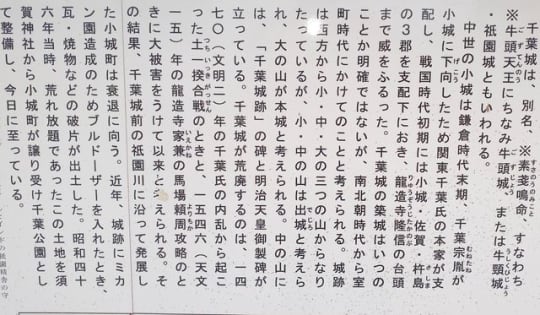 千葉城は、別名、※素戔鳴命、すなわち
※牛頭天王にちなみ牛頭城、または牛頸城
・祇園城ともいわれる。
中世の小城は鎌倉時代末期、千葉宗胤が
小城に下向したため関東千葉氏の本家が支
配し、戦国時代初期には小城・佐賀・杵島
の3郡を支配下におき、龍造寺隆信の台頭
まで威をふるった。千葉城の築城はいつの
ことか明確ではないが、南北朝時代から室
町時代にかけてのことと考えられる。城跡
は西方から小・中・大の三つの山からなり
たっているが、小・中の山は出城と考えら
れ、大の山が本城と考えられる。中の山に
は、「千葉城跡」の碑と明治天皇御製碑が
立っている。千葉城が荒廃するのは、一四
七〇(文明二)年の千葉氏の内乱から起こ
った土一揆合戦のときと、一五四六(天文
一五)年の龍造寺家兼の馬場頼周攻略のと
きに大被害をうけて以来と考えられる。そ
の結果、千葉城前の祇園川に沿って発展し
た小城町は衰退に向う。近年、城跡にミカ
ン園造成のためブルドーザーを入れたとき、
瓦・焼物などの破片が出土した。昭和四十
六年当時、荒れ放題であったこの土地を須
賀神社から小城町が譲り受け千葉公園とし
て整備し、今日に至っている。